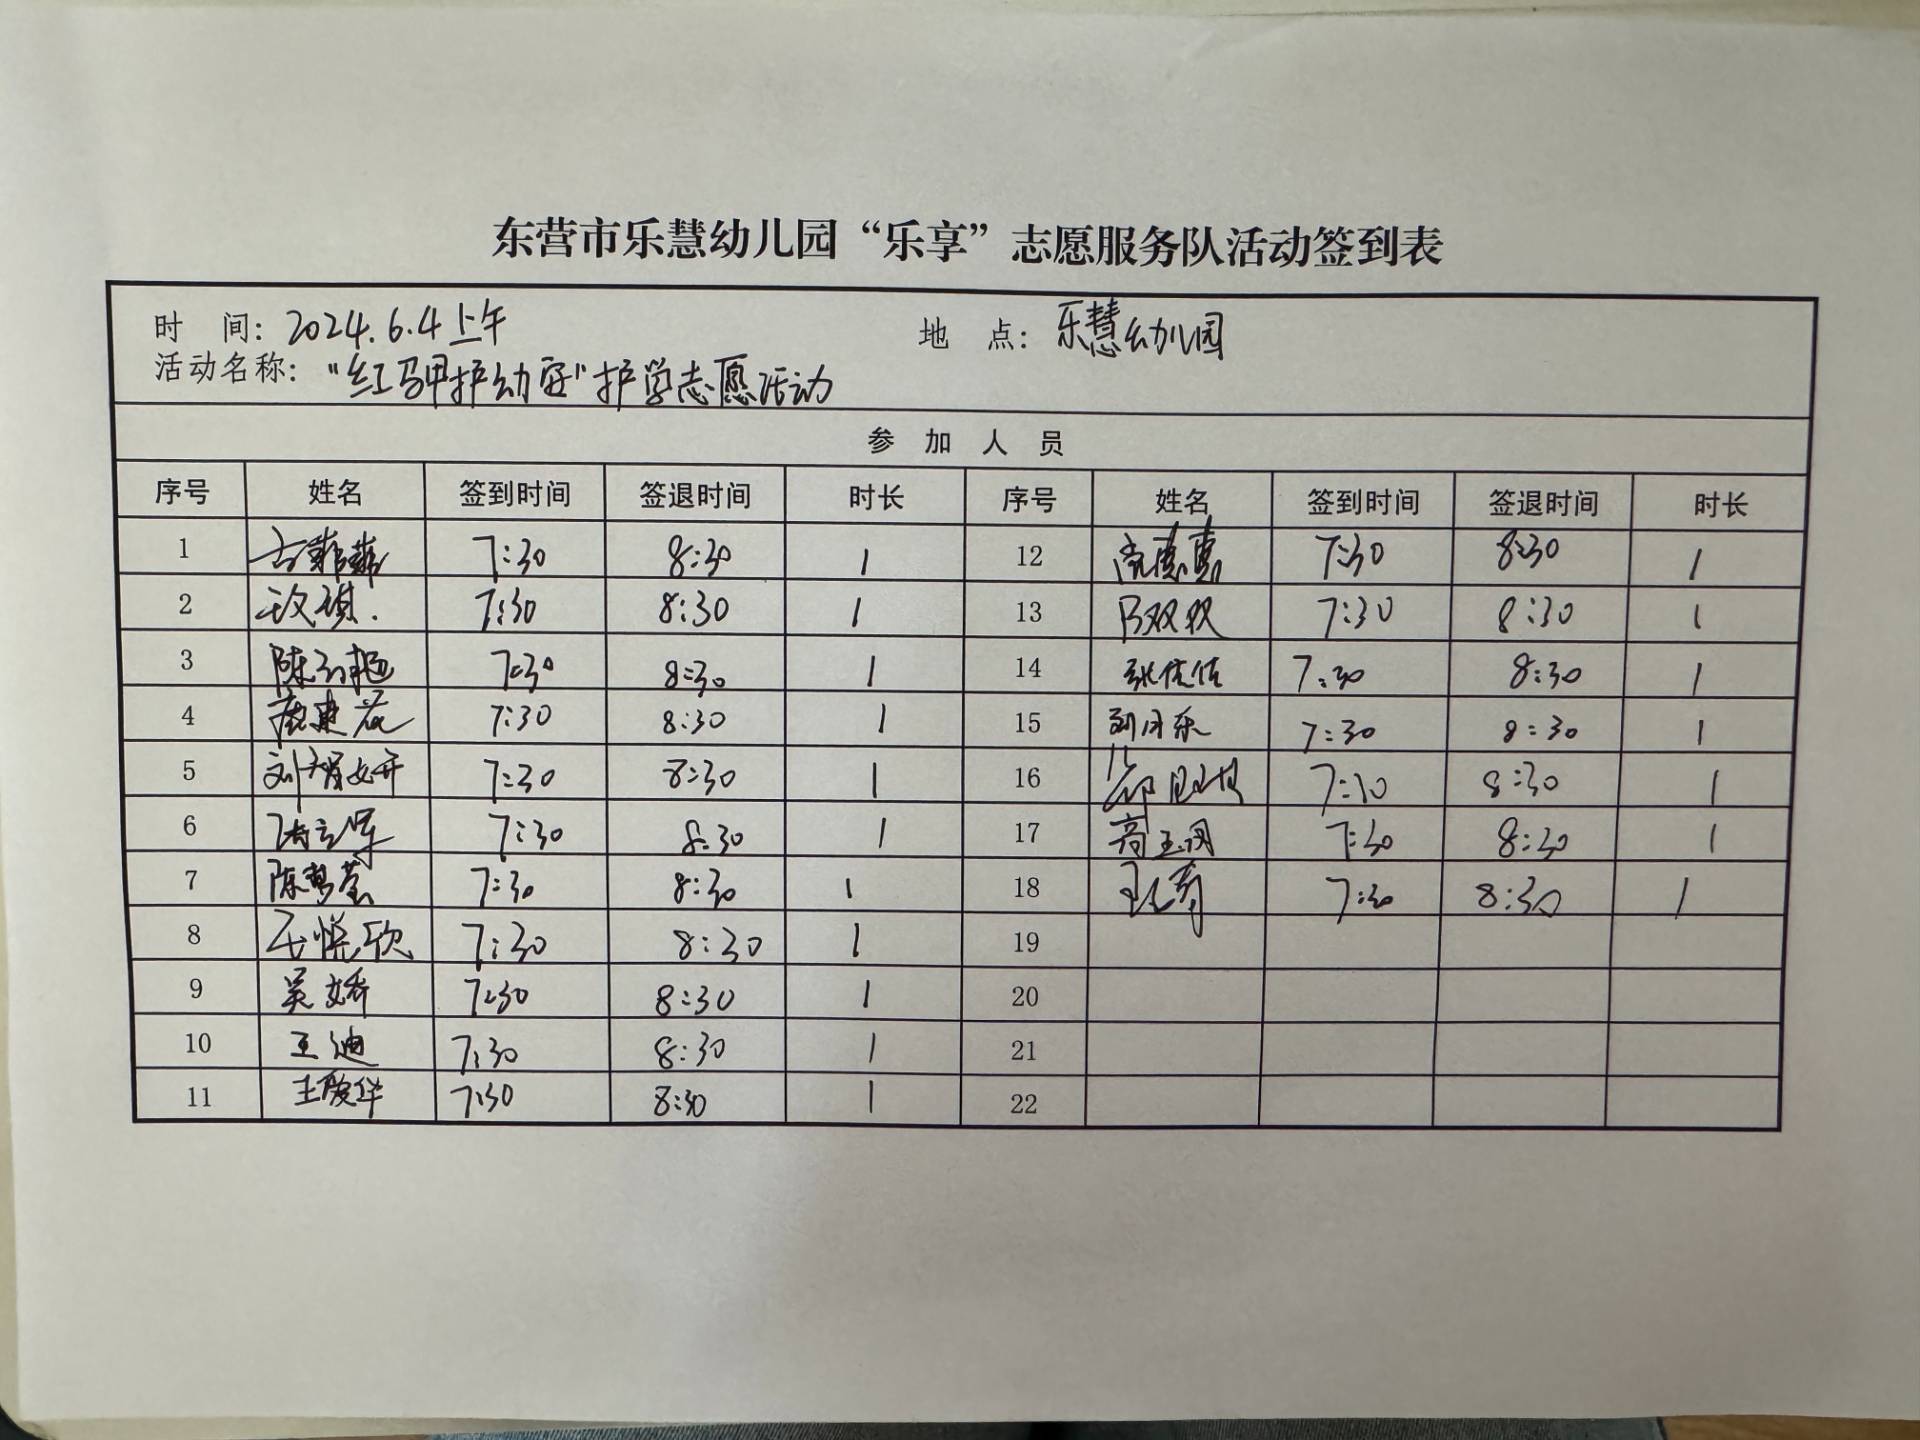 东营市乐慧幼儿园“乐享”志愿服务队活动签到表
时 间：2024.6.4上午 地 点：乐慧幼儿园
活动名称：“红马甲护幼安”护学志愿活动
参 加 人 员
序号 姓名 签到时间 签退时间 时长 序号 姓名 签到时间 签退时间 时长
1 7:30 8:30 1 12 7:30 8:30 1
2 7:30 8:30 1 13 双双 7:30 8:30 1
3 陈 艳 7:30 8:30 1 14 张佳佳 7:30 8:30 1
4 7:30 8:30 1 15 刘月乐 7:30 8:30 1
5 刘 妍 7:30 8:30 1 16 7:30 8:30 1
6 7:30 8:30 1 17 高玉 7:30 8:30 1
7 陈 莹 7:30 8:30 1 18 7:30 8:30 1
8 悦欣 7:30 8:30 1 19
9 吴娇 7:30 8:30 1 20
10 王迪 7:30 8:30 1 21
11 王 华 7:30 8:30 1 22